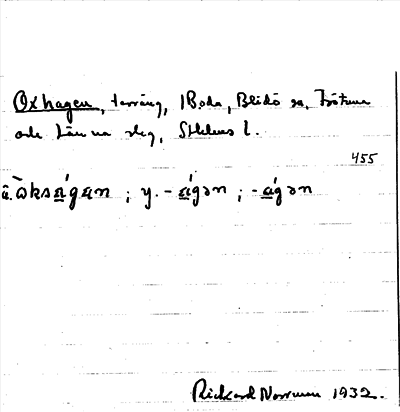 Oxhagen, terräng, i Boda, Blidö sn, Frötuna
och Länna slg, Sthlms l.
455
ä. ὼksa̱´gan ; y. -a̱´gən ; -a̱´gən
Rickard Norrman 1932.